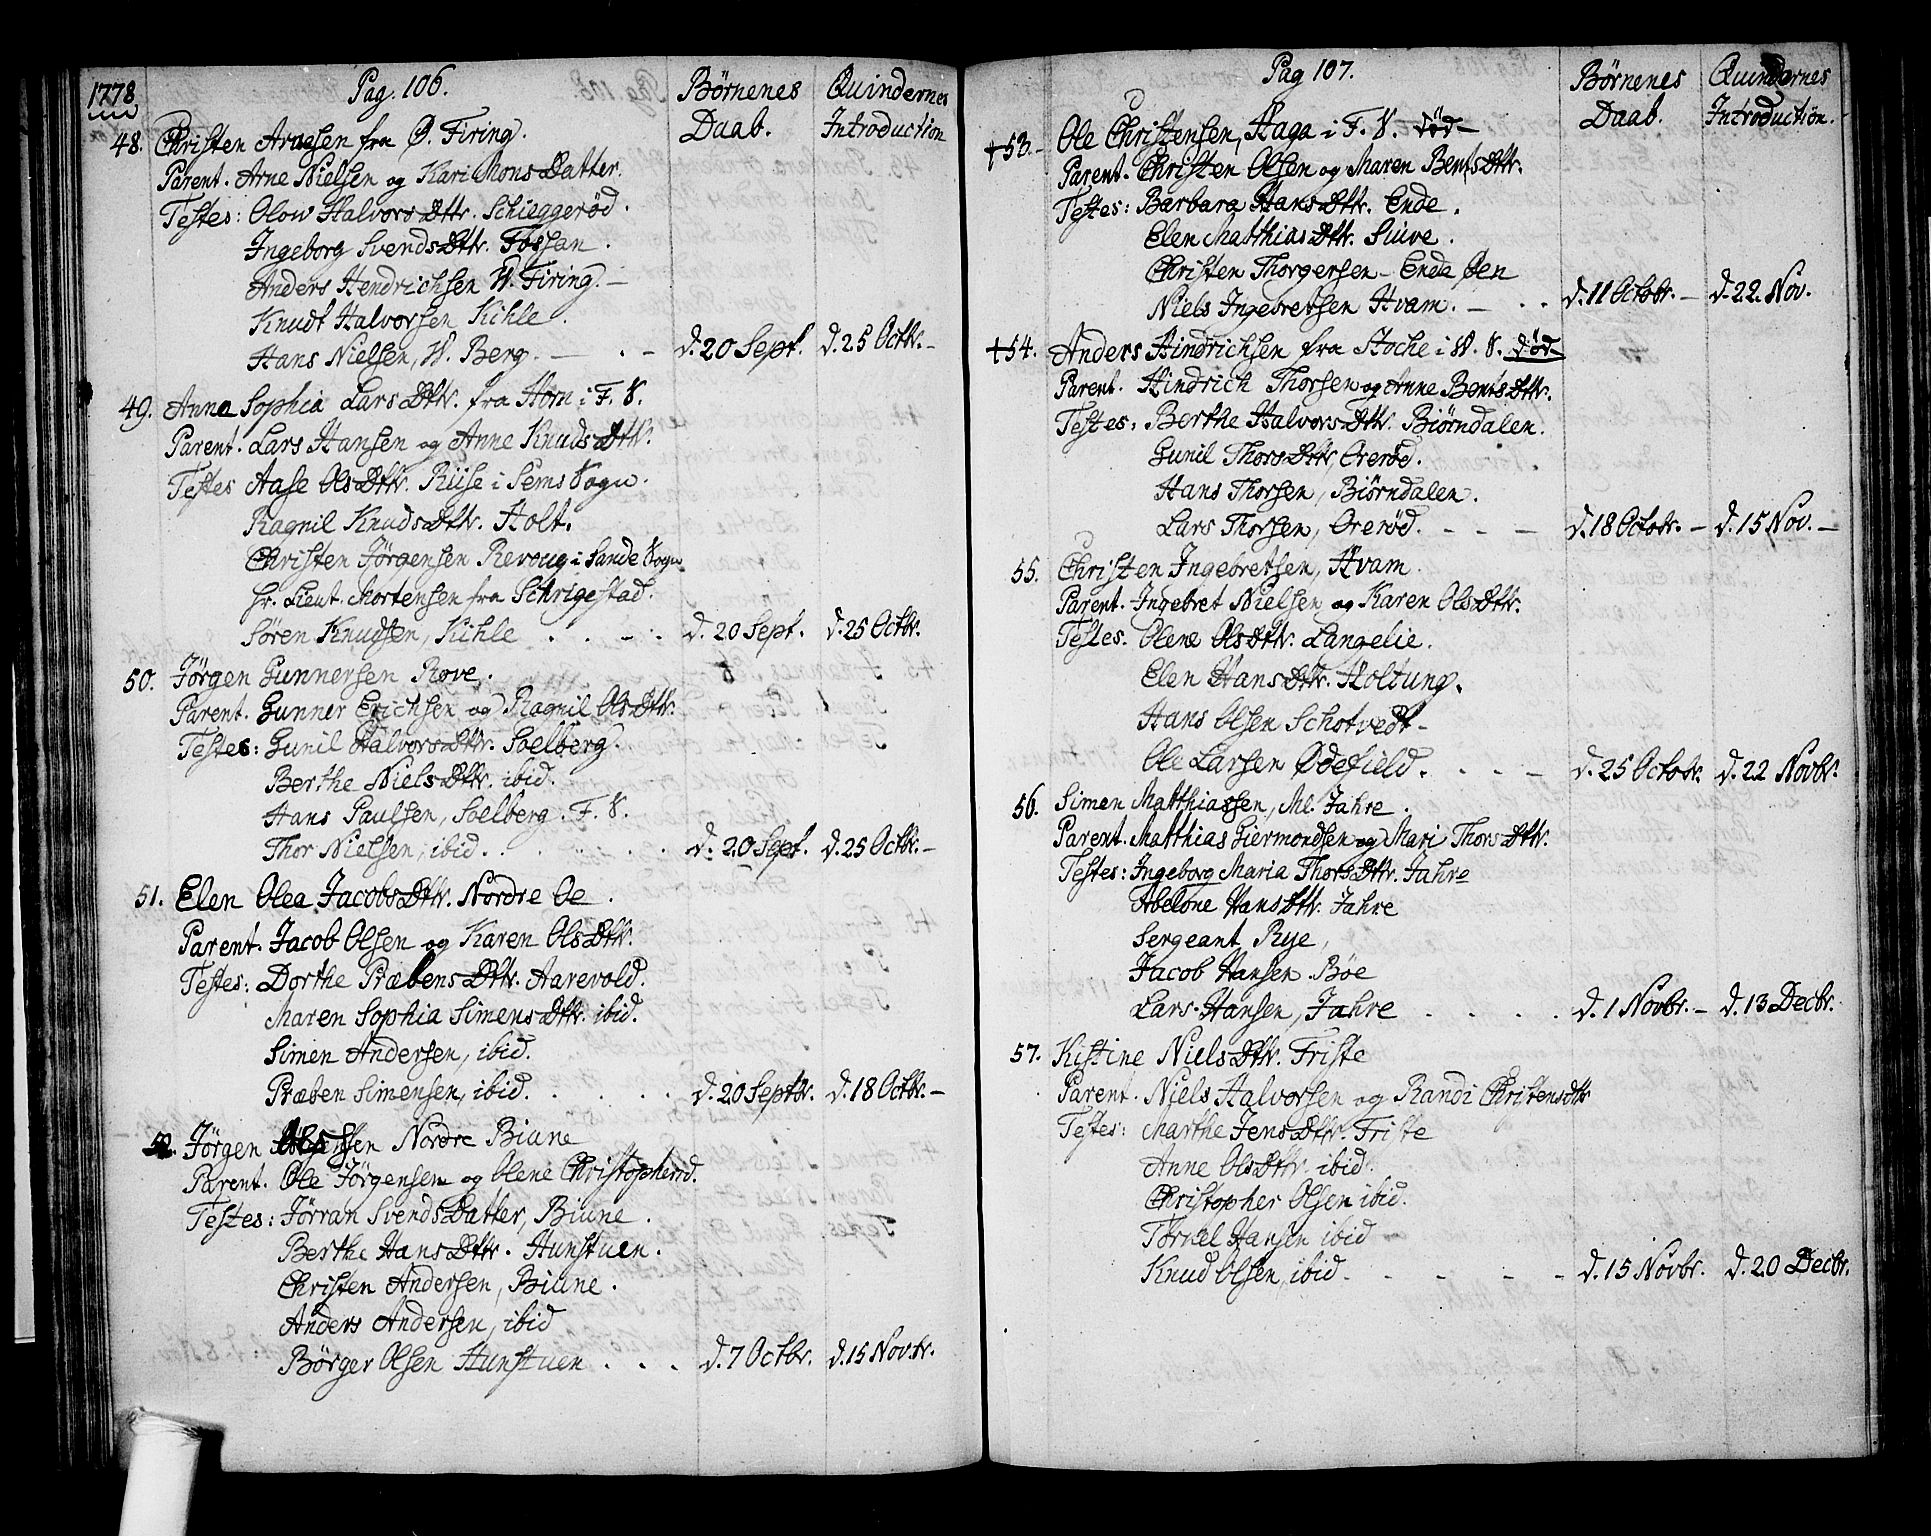 1778
Pag. 106.
Børnenes Daab.
Quindernes Introduction
48. Christen Arnesen fra Ø. Firing.
Parent. Arne Nielsen og Kari Mons Datter.
Testes: Olow Halvors Dttr. Schieggerød.
Ingeborg Svends Dttr. Fossan.
Anders Hendrichsen W. Firing. –
Knudt Halvorsen Kihle.
Hans Nielsen, W. Berg. – . – d. 20 Sept. d. 25 Octbr. –
49. Anna Sophia Lars Dttr. fra Horn i F. S.
Parent. Lars Hansen og Anne Knuds Dttr.
Testes Aase Ols Dttr. Riise i Sems Sogn.
Ragnil Knuds Dttr. Holt.
Christen Jørgensen Revoug i Sande Sogn
Hr. Lieut. Mortensen fra Schrigestad.
Søren Knudsen, Kihle . . – . d. 20 Sept. d. 25 Octbr.
50. Jørgen Gunnersen Rove.
Parent. Gunner Erichsen og Ragnil Ols Dttr.
Testes: Gunil Halvors Dttr. Solberg.
Berthe Niels Dttr. ibid.
Hans Paulsen, Soelberg. F. S.
Thor Nielsen, ibid. . . . . . d. 20 Sept. d. 25 Octbr. –
51. Elen Olea Jacobs Dttr. Nordre Oe.
Parent. Jacob Olsen og Karen Ols Dttr.
Testes: Dorthe Præbens Dttr. Aarevold.
Maren Sophia Simens Dttr. ibid.
Simen Andersen, ibid.
Præben Simensen, ibid. . . . . d. 20 Septbr. d. 18 Octbr. –
52. Jørgen Olsen Nordre Biune
Parent. Ole Jørgensen og Olene Christophersd.
Testes: Jørran Svends Datter, Biune.
Berthe Hans Dttr. Hunstuen.
Christen Andersen, Biune.
Anders Andersen, ibid
Børger Olsen Hunstuen . . . d. 7 Octbr. d. 15 Novbr.
Pag 107.
Børnenes Daab.
Quindernes Introduction.
†53. – Ole Christensen, Haga i F. S. død –
Parent. Christen Olsen og Maren Bents Dttr.
Testes: Barbara Hans Dttr. Ende.
Elen Matthias Dttr. Siuve.
Christen Thorgersen – Ende Øen
Niels Ingebretsen Hvam. – . . d. 11 Octobr. – d. 22. Nov.
†54. Anders Hindrichsen fra Hoche i W. S. død
Parent. Hindrich Thorsen og Anne Bents Dttr.
Testes: Berthe Halvors Dttr. Biørndalen.
Gunil Thors Dttr Orerød.
Hans Thorsen, Biørndalen.
Lars Thorsen, Orerød. . – – d. 18 Octobr. – d. 15 Nov. –
55. Christen Ingebretsen, Hvam.
Parent. Ingebret Nielsen og Karen Ols Dttr.
Testes. Olene Ols Dttr. Langelie.
Elen Hans Dttr. Holtung.
Hans Olsen Schotvedt –
Ole Larsen Ødefield. . . – d. 25 Octobr. d. 22 Novbr.
56. Simen Matthiassen, Ml. Jahre.
Parent. Matthias Giermondsen og Mari Thors Dttr.
Testes: Ingeborg Maria Thors Dttr. Jahre
Abelone Hans Dttr. Jahre
Sergeant Rye,
Jacob Hansen. Bøe
Lars Hansen, Jahre . . . . d. 1 Novbr. – d. 13 Decbr.
57. Kistine Niels Dttr. Friste
Parent. Niels Halvorsen og Randi Christensdtr
Testes: Marthe Jens Dttr. Friste
Anne Ols Dttr. ibid.
Christopher Olsen ibid.
Tørkel Hansen ibid –
Knud Olsen, ibid. – – – – d. 15 Novbr. d. 20 Decbr.